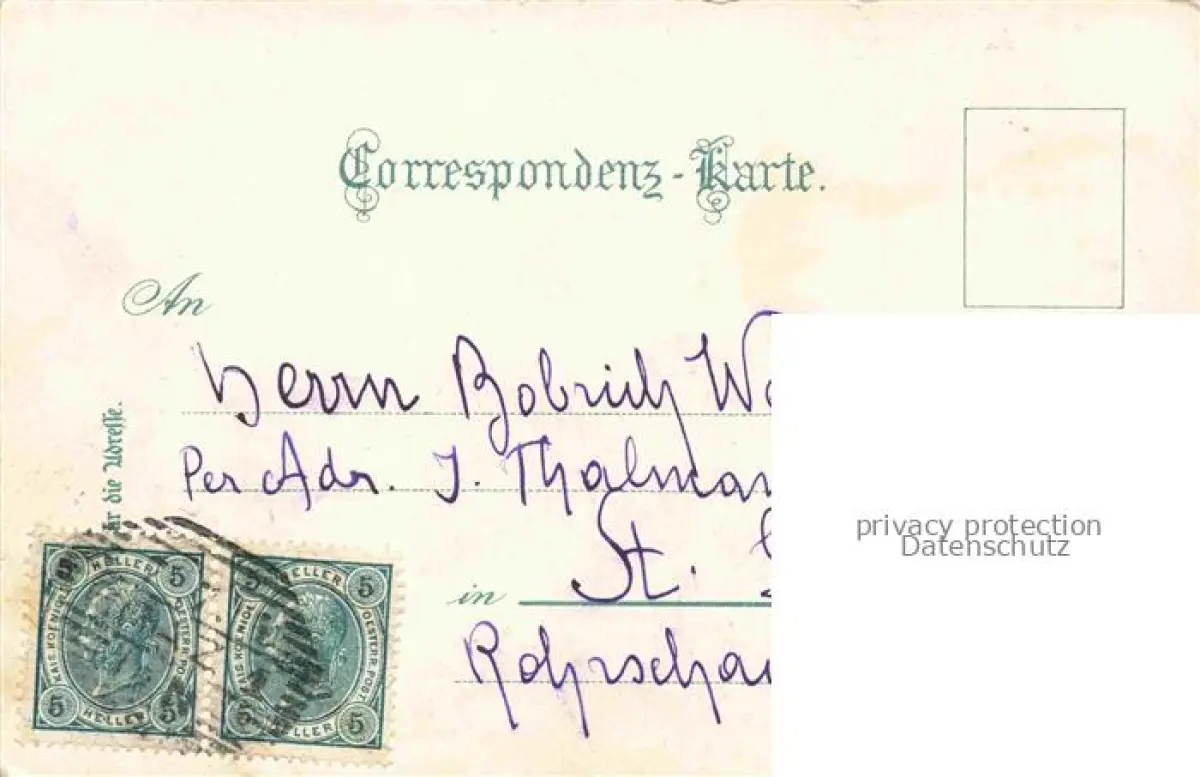 Correspondenz-Karte.
An
Herrn Bobrich
Per Adr. J. Thalma
in St.
Rohrscha
ür die Adresse.
5 HELLER 5
KAIS. KOENIGL. OESTERR. POST.
5 HELLER 5
5 HELLER 5
KAIS. KOENIGL. OESTERR. POST.
5 HELLER 5
privacy protection
Datenschutz